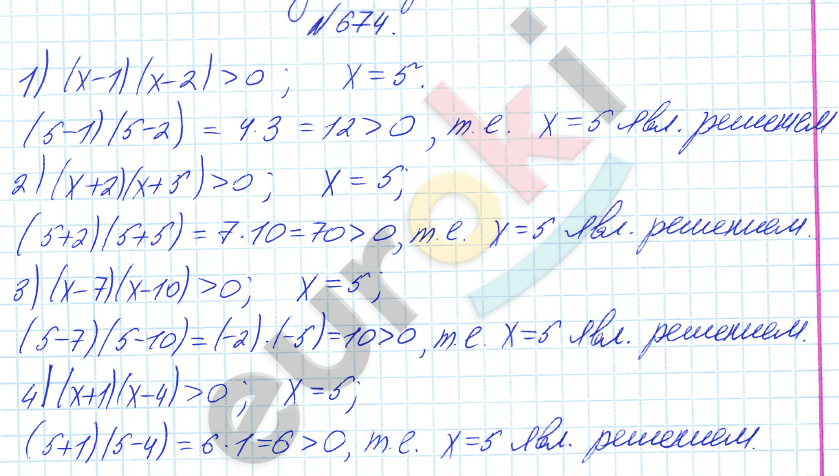 №674.
1) (x-1)(x-2)>0; x=5.
(5-1)(5-2) = 4·3 = 12>0, т.е. x=5 явл. решением
2) (x+2)(x+5)>0; x=5;
(5+2)(5+5)=7·10=70>0, т.е. x=5 явл. решением.
3) (x-7)(x-10)>0; x=5;
(5-7)(5-10)=(-2)·(-5)=10>0, т.е. x=5 явл. решением.
4) (x+1)(x-4)>0; x=5;
(5+1)(5-4)=6·1=6>0, т.е. x=5 явл. решением.
euroki